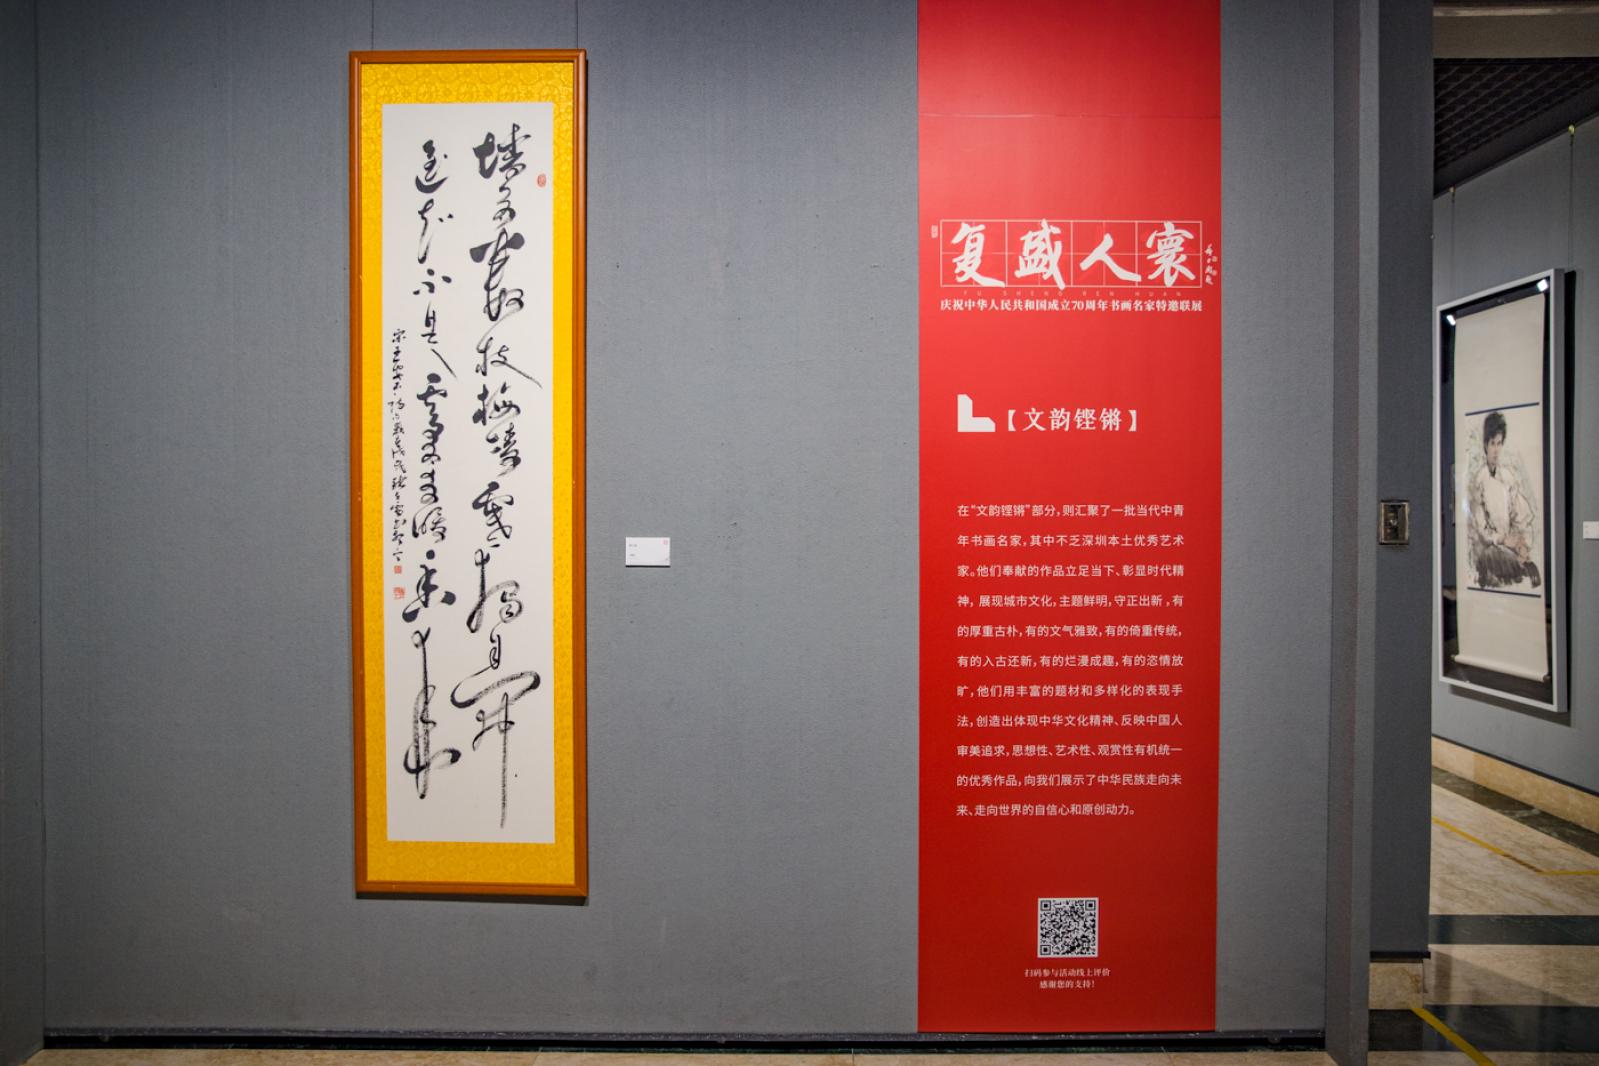 墙角數枝梅凌寒獨自開
遥知不是雪為有暗香来
复盛人寰
FU SHENG REN HUAN
庆祝中华人民共和国成立70周年书画名家特邀联展
【文韵铿锵】
在“文韵铿锵”部分,则汇聚了一批当代中青
年书画名家,其中不乏深圳本土优秀艺术
家。他们奉献的作品立足当下、彰显时代精
神，展现城市文化,主题鲜明,守正出新,有
的厚重古朴,有的文气雅致,有的倚重传统,
有的入古还新,有的烂漫成趣,有的恣情放
旷,他们用丰富的题材和多样化的表现手
法,创造出体现中华文化精神、反映中国人
审美追求,思想性、艺术性、观赏性有机统一
的优秀作品,向我们展示了中华民族走向未
来、走向世界的自信心和原创动力。
扫码参与活动线上评价
感谢您的支持!